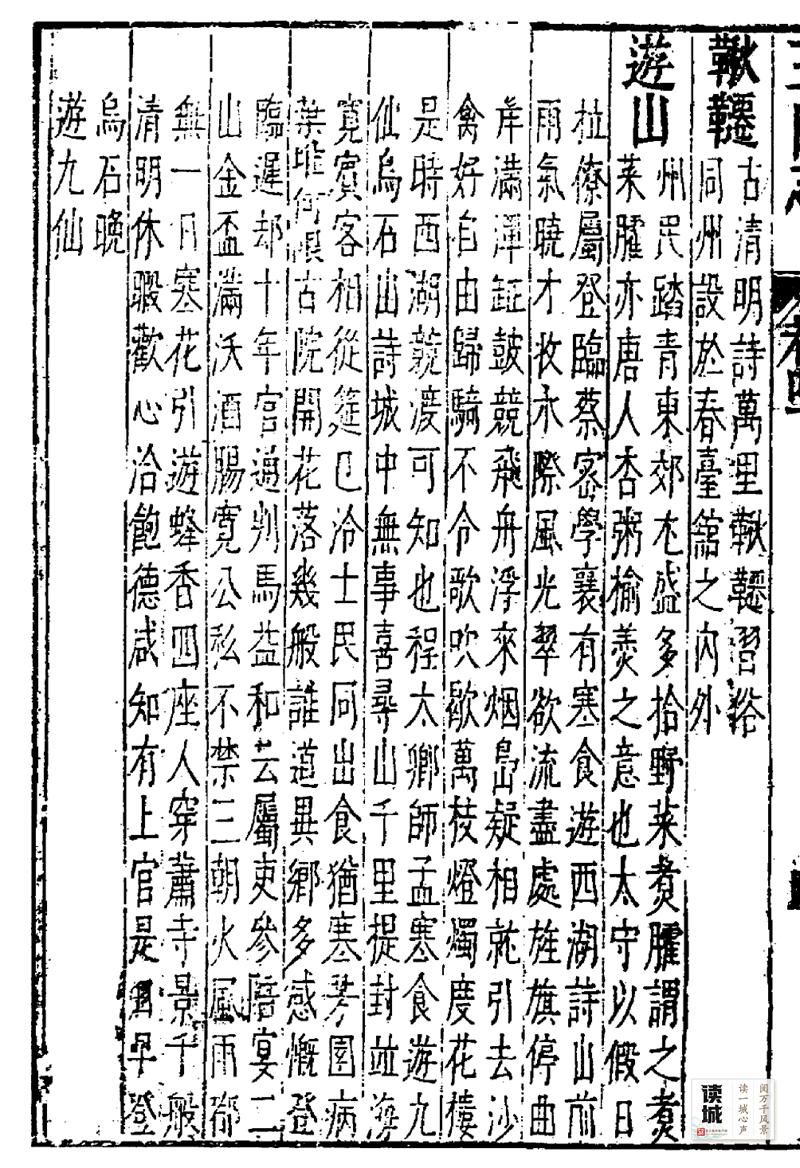 鞦韆
古清明詩萬里鞦韆習俗
同州設於春臺舘之內外
遊山
州民踏青東郊尤盛多拾野菜煮臛謂之煮
菜臛亦唐人杏粥榆羹之意也太守以假日
拉僚屬登臨蔡密學襄有寒食遊西湖詩山前
雨氣曉才收水際風光翠欲流盡處旌旗停曲
岸滿潭鉦鼓競飛舟浮來烟島疑相就引去沙
禽好自由歸騎不令歌吹歇萬枝燈燭度花樓
是時西湖競渡可知也程太卿師孟寒食遊九
仙烏石山詩城中無事喜尋山千里提封並海
寛賓客相從筵已洽士民同出食猶寒芳園病
葉堆何恨古院開花落幾般誰道異鄉多感慨登
臨遲却十年官通判馬益和云屬吏參陪宴二
山金盃滿沃酒腸寛公私不禁三朝火風雨都
無一日寒花引遊蜂香四座人穿蕭寺景千般
清明休暇歡心洽飽德咸知有上官是日早登
烏石晚
遊九仙
读城
阅万千风景
读一城心声